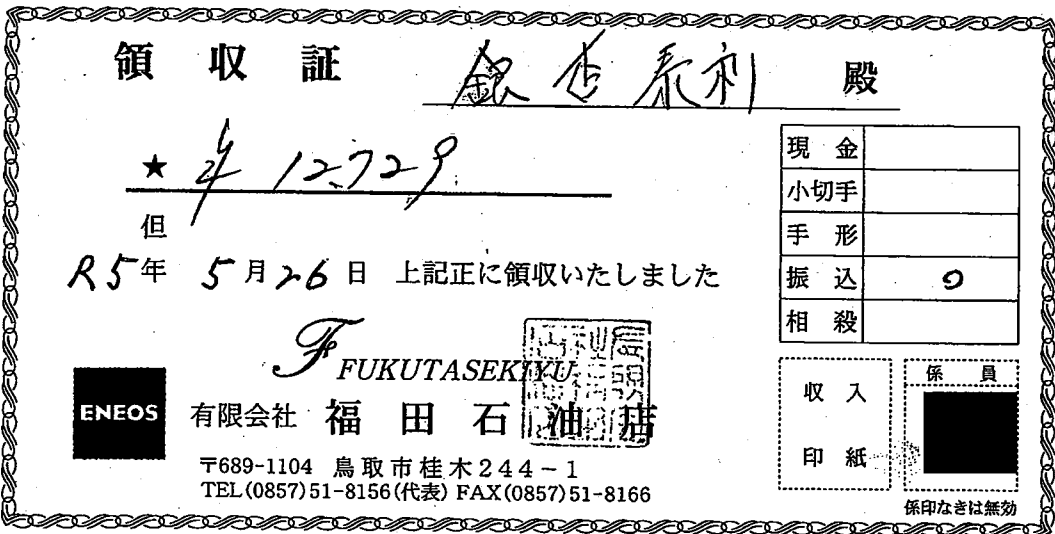 領収証 銀杏泰利 殿
★ ¥12,729
但
R5年 5月26日 上記正に領収いたしました
現金
小切手
手形
振込 〇
相殺
F FUKUTASEKIYU
ENEOS 有限会社 福田石油店
〒689-1104 鳥取市桂木244-1
TEL(0857)51-8156(代表) FAX(0857)51-8166
収入
印紙
係員
係印なきは無効